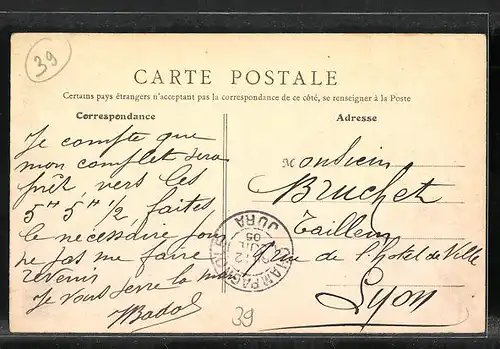 39
CARTE POSTALE
Certains pays étrangers n'acceptant pas la correspondance de ce côté, se renseigner à la Poste
Correspondance
Je compte que
mon complet sera
prêt, vers les
5H 5H 1/2, faites
le nécessaire pour
ne pas me faire
revenir
Je vous serre la main
Adresse
Monsieur
Bruchet
Tailleur
rue de l'hotel de Ville
Lyon
JURA
39